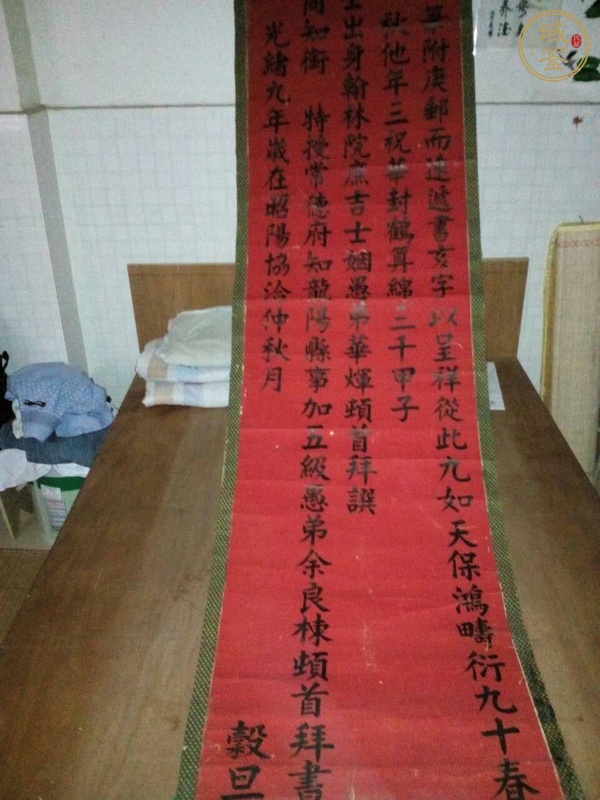 筆附庚郵而遠遞書亥字以呈祥從此九如天保鴻疇衍九十春
秋他年三祝華封鶴算綿三千甲子
士出身翰林院庶吉士姻愚弟華煇頓首拜譔
同知銜　特授常德府知龍陽縣事加五級愚弟余良棟頓首拜書
光緒九年歲在昭陽協洽仲秋月
穀旦